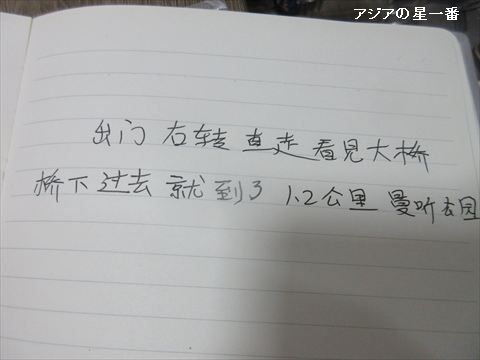 アジアの星一番
出门 右转 直走 看見大桥
桥下过去 就到了 1.2公里 曼听公园